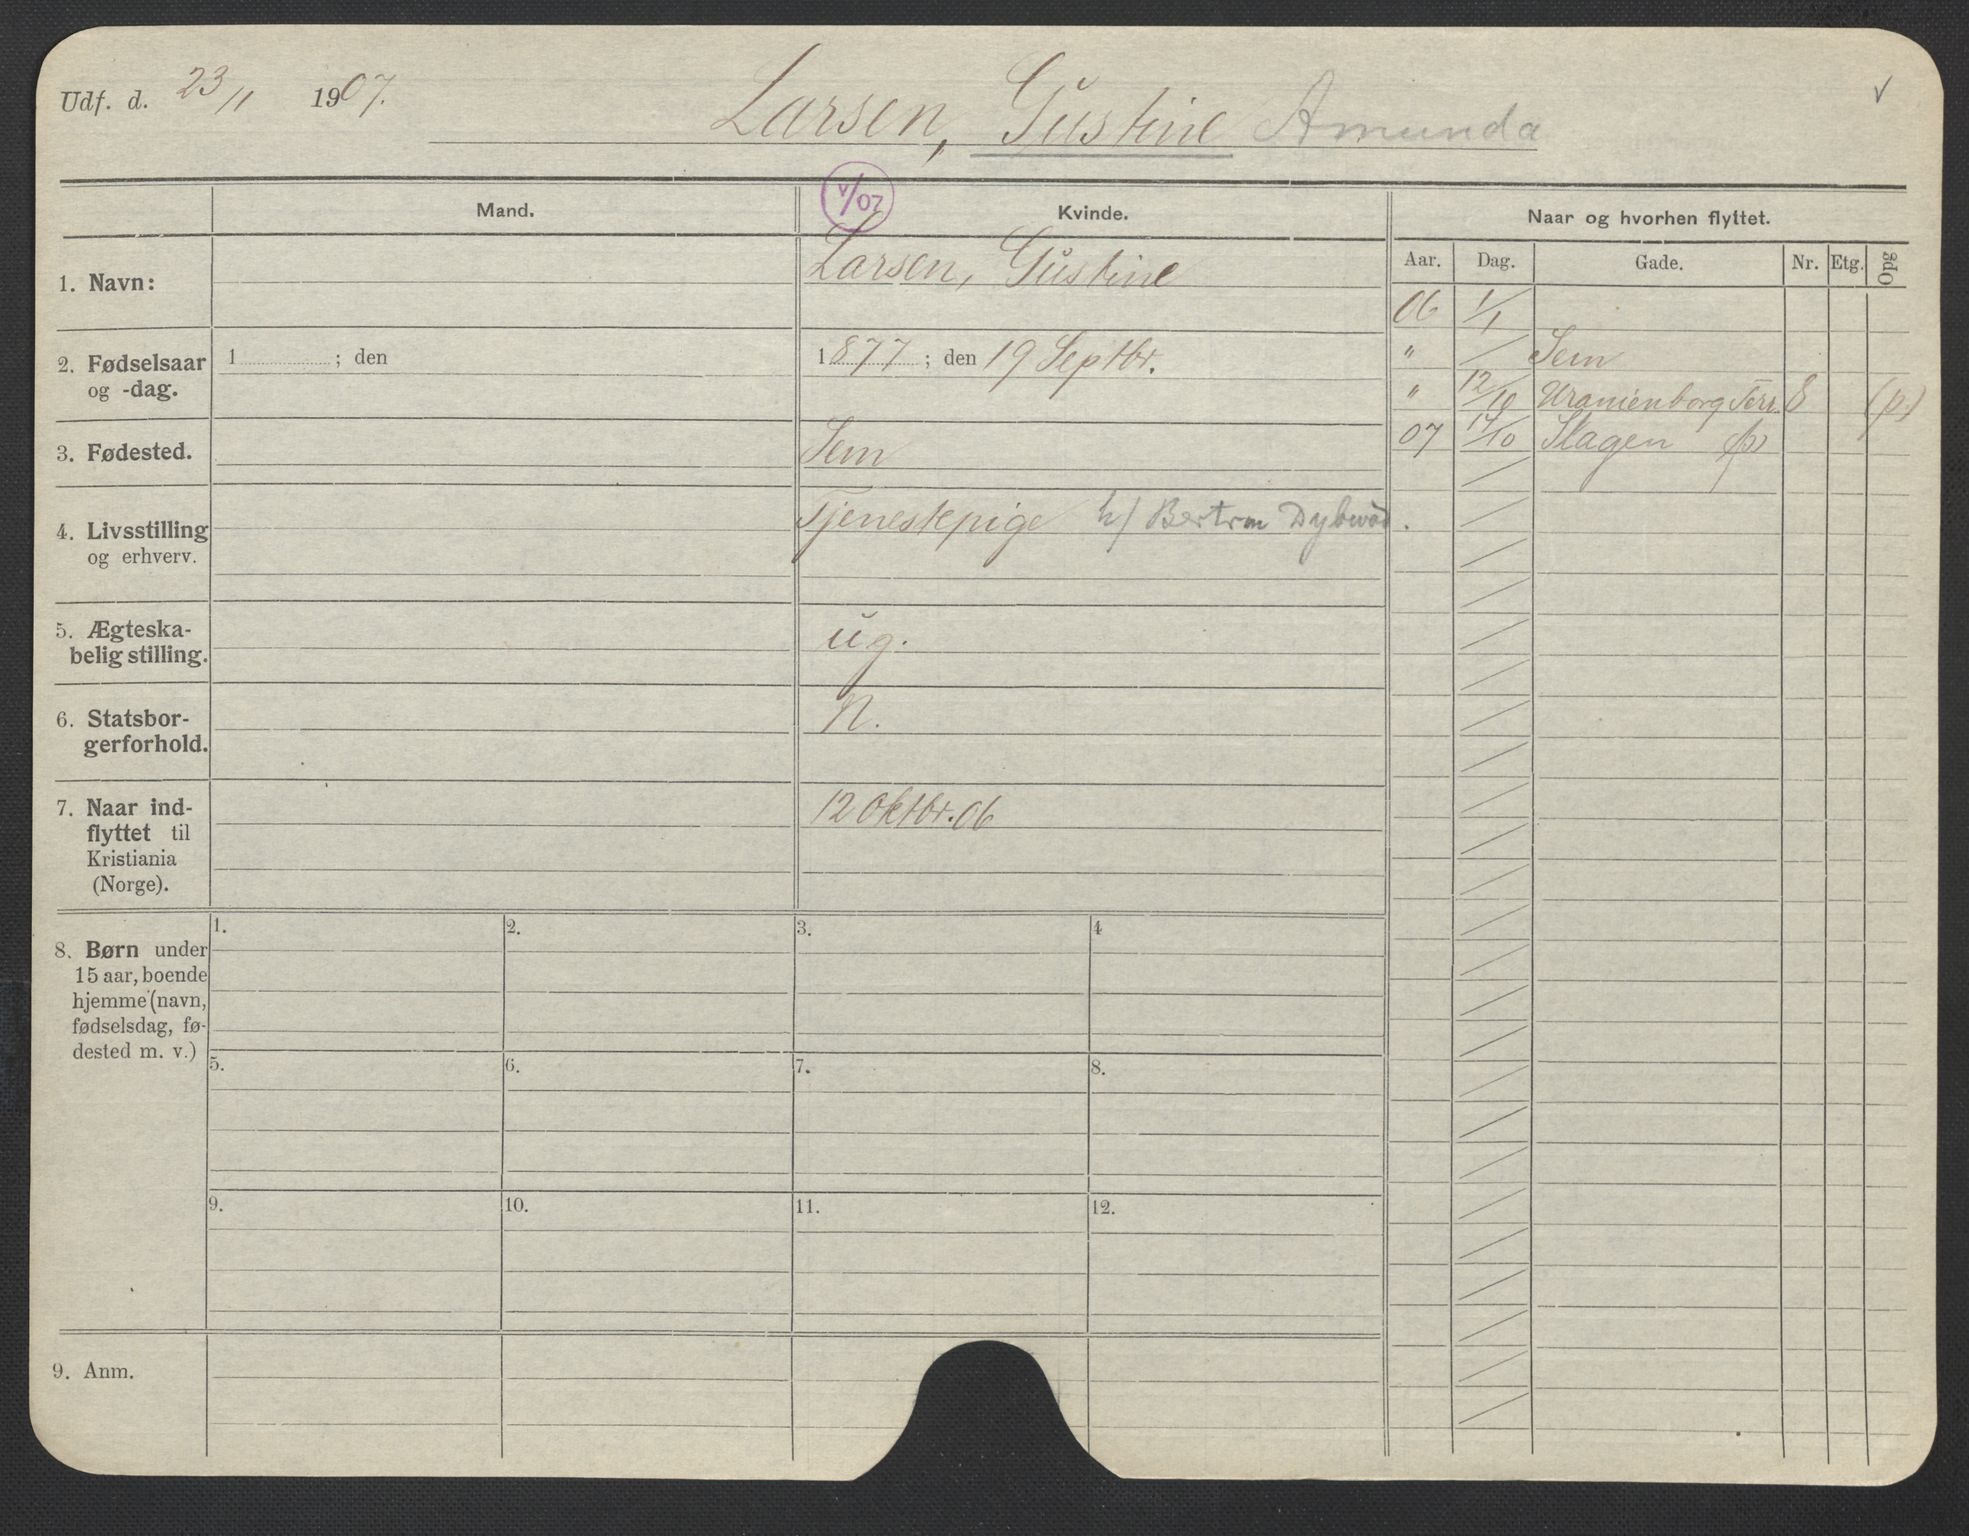 Udf. d. 23/11 1907.
Larsen, Gustine Amunda
V/07
Mand. Kvinde. Naar og hvorhen flyttet.
Aar. Dag. Gade. Nr. Etg. Opg
1. Navn: Larsen, Gustine
06 1/1
" Sem
" 12/10 Uranienborg Terr. 8 (p)
07 17/10 Slagen (p)
2. Fødselsaar
og -dag.
1 ; den
1877 ; den 19 Septbr.
3. Fødested. Sem
4. Livsstilling
og erhverv.
Tjenestepige h/ Bertram Dybwad.
5. Ægteska-
belig stilling.
ug.
6. Statsbor-
gerforhold.
N.
7. Naar ind-
flyttet til
Kristiania
(Norge).
12 Oktbr. 06
8. Børn under
15 aar, boende
hjemme (navn,
fødselsdag, fø-
dested m. v.)
1. 2. 3. 4
5. 6. 7. 8.
9. 10. 11. 12.
9. Anm.